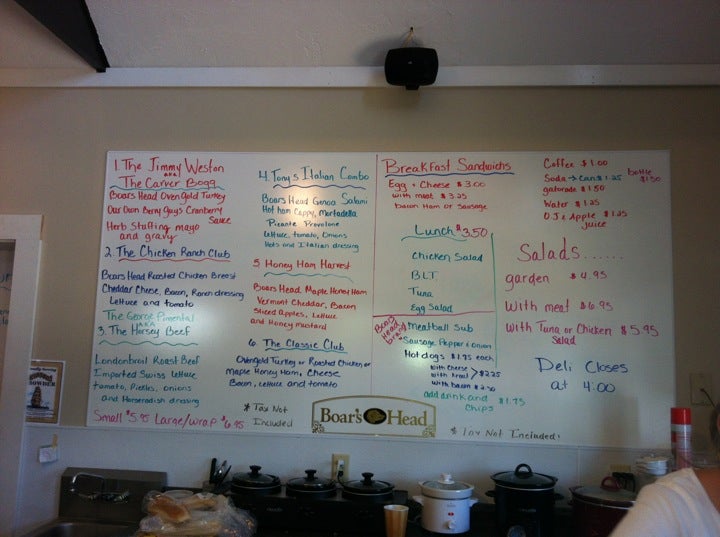 1. The Jimmy Weston
A.K.A
The Carver Bogg
Boars Head Oven Gold Turkey
Our Own Berry Guy's Cranberry
Sauce
Herb Stuffing mayo
and gravy
2. The Chicken Ranch Club
Boars Head Roasted Chicken Breast
Cheddar Chese, Bacon, Ranch dressing
Lettuce and tomato
The George Pimental
A.K.A
3. The Horsey Beef
Londonbroil Roast Beef
Imported Swiss Lettuce
tomato, Pickles, onions
and Horseradish dressing
Small $5.95 Large/wrap $6.95
4. Tony's Italian Combo
Boars Head Genoa Salami
Hot ham Cappy, Mortadella
Picante Provelone
Lettuce, tomato, Onions
Hots and Italian dressing
5. Honey Ham Harvest
Boars Head Maple Honey Ham
Vermont Cheddar, Bacon
Sliced Apples, Lettuce
and Honey mustard
6. The Classic Club
Ovengold Turkey or Roasted Chicken or
Maple Honey Ham, Cheese
Bacon, Lettuce and tomato
* Tax Not
Included
Boar's Head
Breakfast Sandwichs
Egg + Cheese $3.00
with meat $3.25
bacon Ham or Sausage
Lunch $3.50
Chicken Salad
B.L.T.
Tuna
Egg Salad
Meatball Sub
Sausage Pepper & Onion
Hot dogs $1.75 each
with Cheese
with Kraut > $2.25
with bacon $2.50
add drink and $1.75
Chips
Coffee $1.00
Soda → Can $1.25 bottle
$1.50
gatorade $1.50
Water $1.25
O.J & Apple $1.25
juice
Salads......
garden $4.95
With meat $6.95
With Tuna or Chicken $5.95
Salad
Deli Closes
at 4:00
* Tax Not Included!